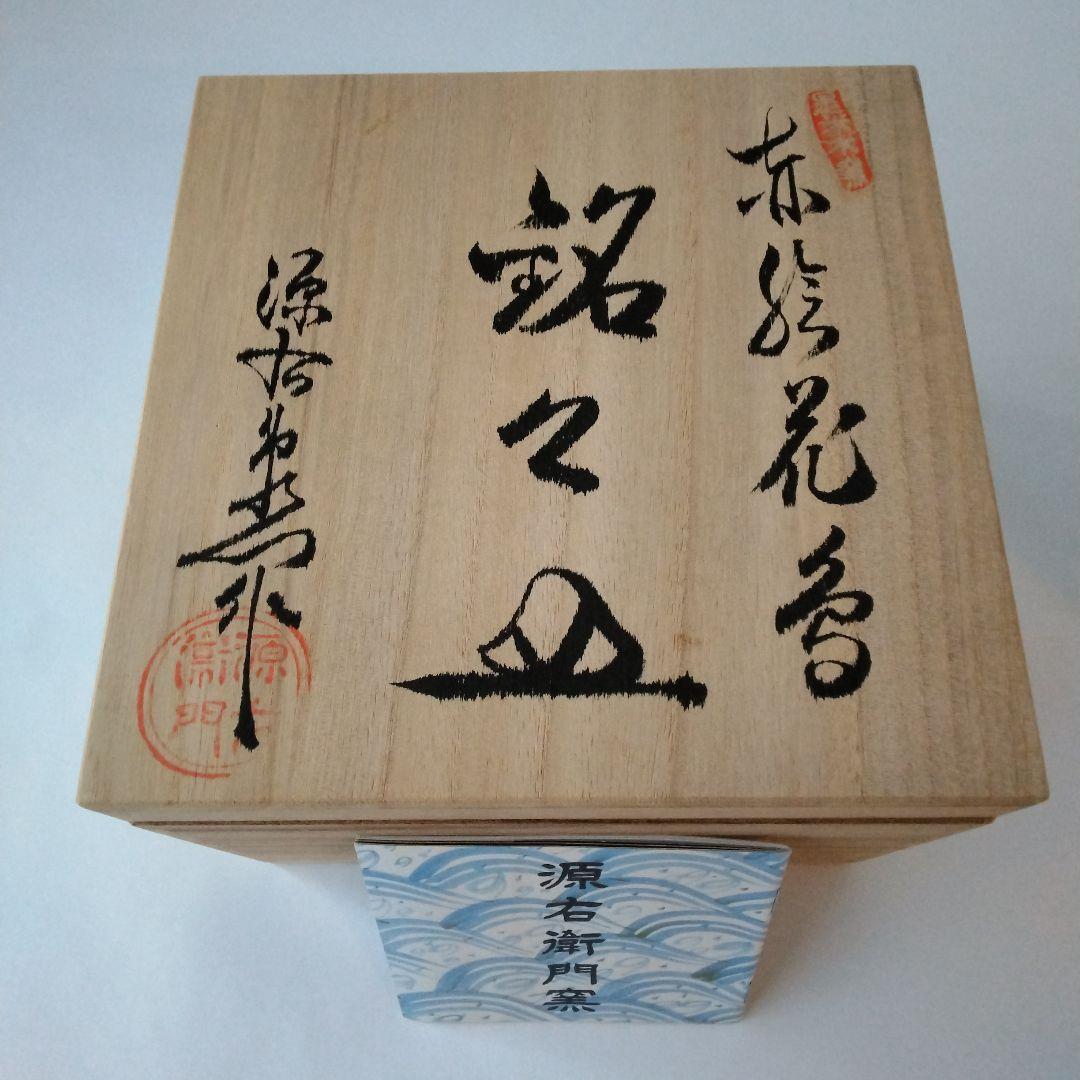 赤絵花鳥
銘々皿
源右衛門窯作
源右衛門
源右衛門窯